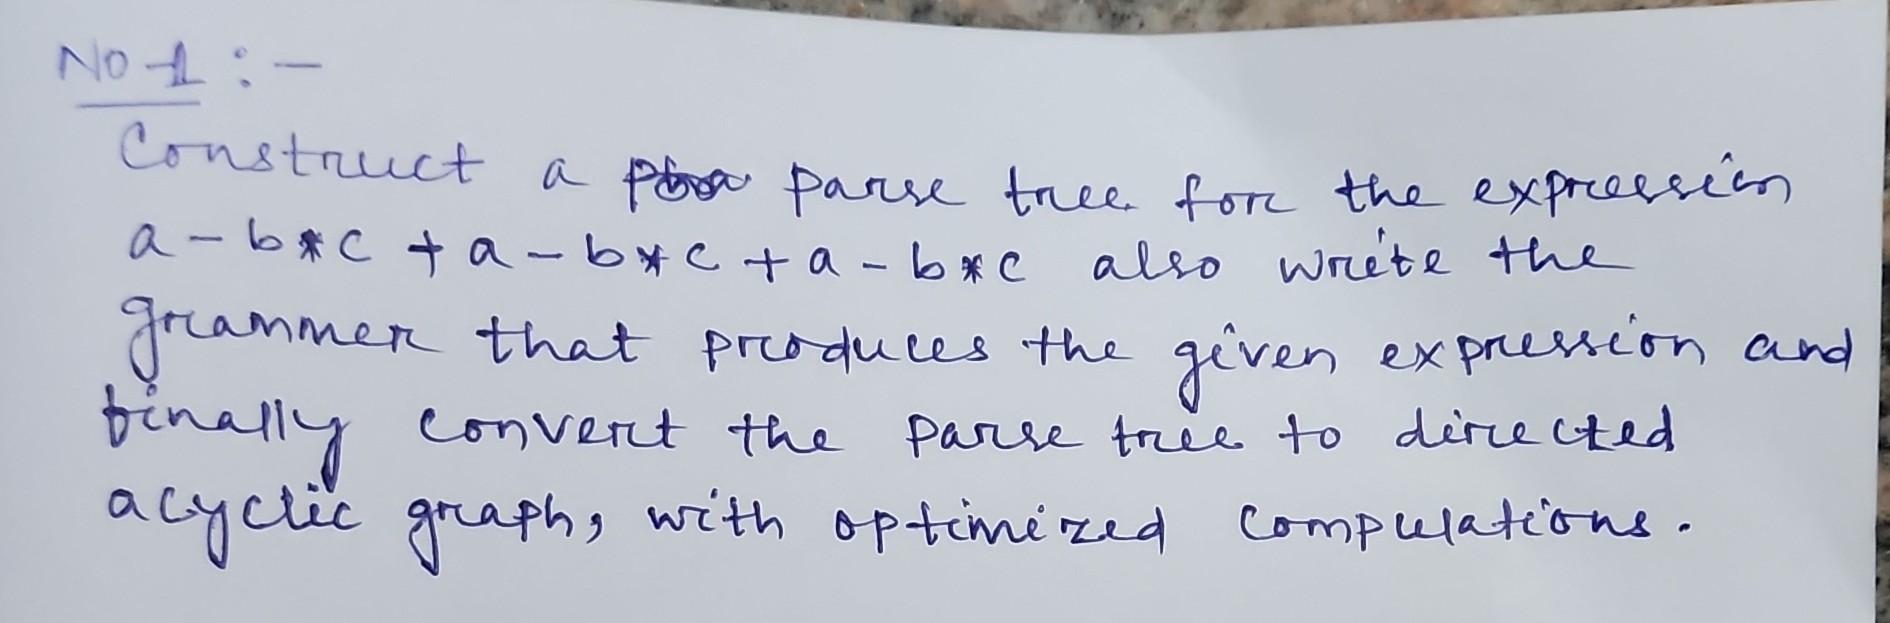 No-1 :-
Construct a parse tree for the expression
a-b*c+a-b*c+a-b*c also write the
grammer that produces the given expression and
finally convert the parse tree to directed
acyclic graph, with optimized compulations.